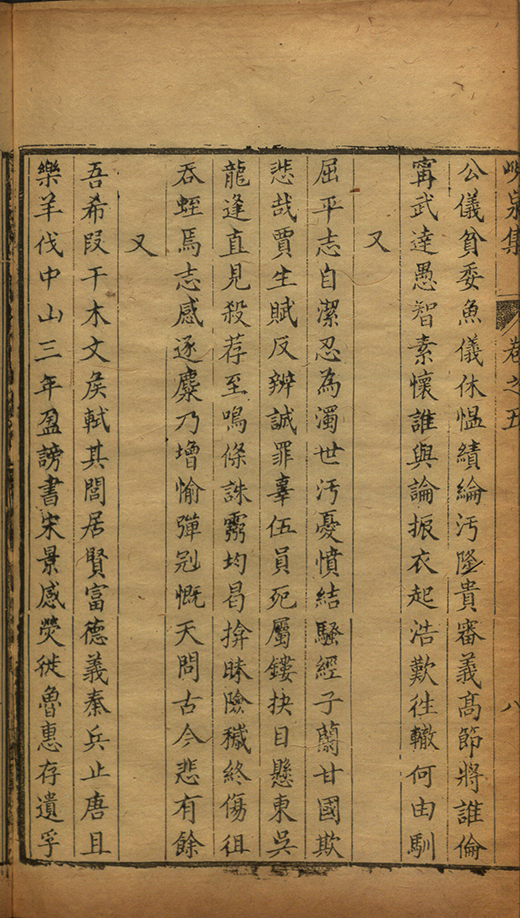 峴泉集 卷之五 八
公儀貧委魚儀休愠績綸汚隆貴審義高節將誰倫
甯武達愚智素懷誰與論振衣起浩歎徃轍何由馴
又
屈平志自潔忍為濁世汚憂憤結騷經子蘭甘國欺
悲哉賈生賦反辨誠罪辜伍員死屬鏤抉目懸東吳
龍逢直見殺荐至鳴條誅靈均曷揜昧險穢終傷徂
吞蛭焉志感逐麋乃增愉彈冠慨天問古今悲有餘
又
吾希段干木文侯軾其閭居賢富德義秦兵止唐且
樂羊伐中山三年盈謗書宋景感熒徙魯惠存遺孚